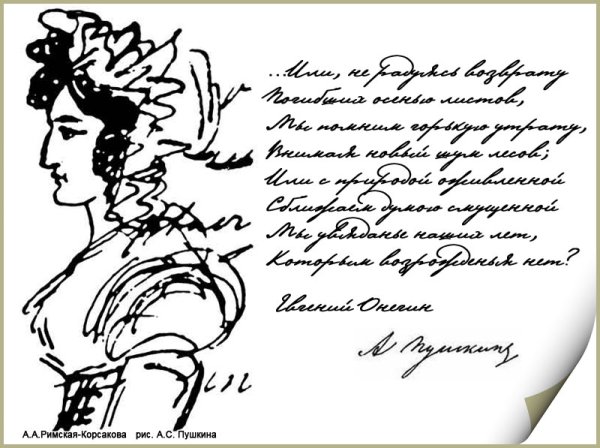 ...Или, не радуясь возврату
Погибших осенью листов,
Мы помним горькую утрату,
Внимая новый шум лесов;
Или с природой оживленной
Сближаем думою смущенной
Мы увяданье наших лет,
Которым возрожденья нет?
Евгений Онегин
А Пушкинъ
А.А.Римская-Корсакова рис. А.С. Пушкина